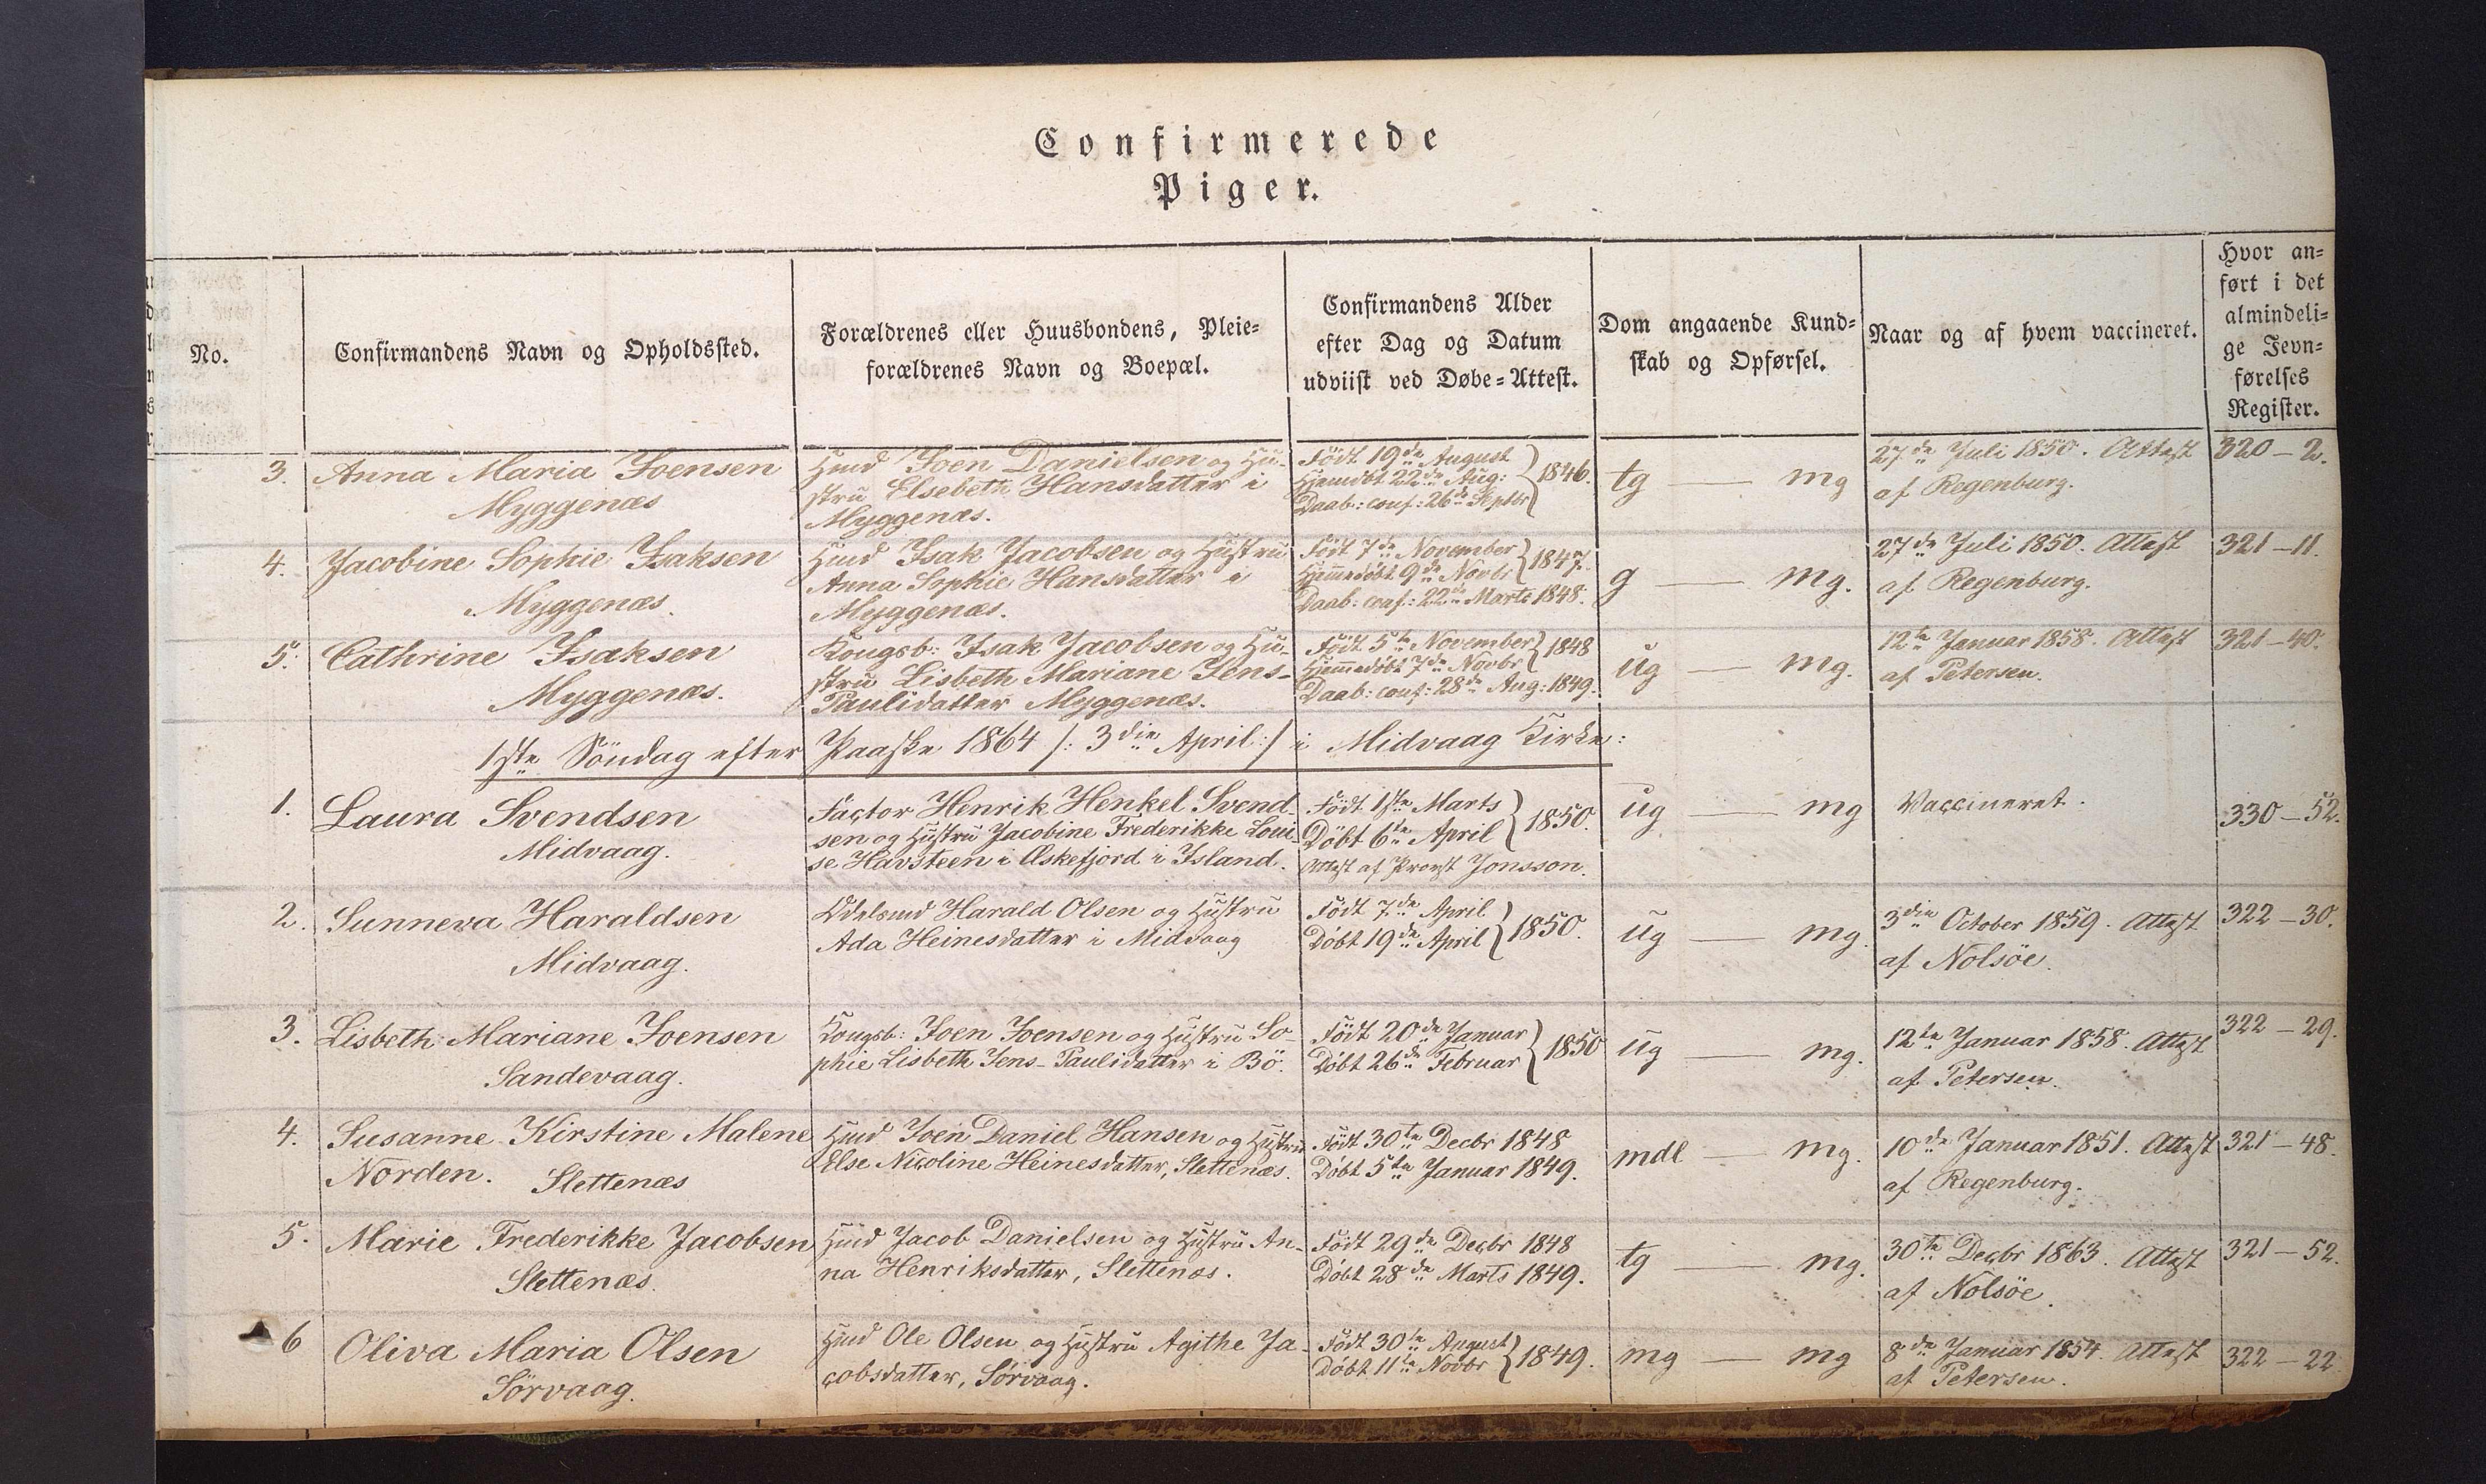 Confirmerede
Piger.
No.
Confirmandens Navn og Opholdssted.
Forældrenes eller Huusbondens, Pleie-
forældrenes Navn og Boepæl.
Confirmandens Alder
efter Dag og Datum
udviist ved Døbe-Attest.
Dom angaaende Kund-
skab og Opførsel.
Naar og af hvem vaccineret.
Hvor an-
ført i det
almindeli-
ge Jevn-
førelses
Register.
3. Anna Maria Joensen
Myggenæs
Hmd Joen Danielsen og Hu-
stru Elsebeth Hansdatter i
Myggenæs.
Født 19de August
Hjemdöbt 22de Aug:
Daab: conf: 26de Septbr
1846.
tg — mg
27de Juli 1850. Attest
af Regenburg.
320 – 2.
4. Jacobine Sophie Isaksen
Myggenæs.
Hmd Isak Jacobsen og Hustru
Anna Sophie Hansdatter i
Myggenæs.
Født 7de November
Hjemmedöbt 9de Novbr
1847.
Daab: conf: 22de Marts 1848.
g — mg.
27de Juli 1850. Attest
af Regenburg.
321 – 11.
5. Cathrine Isaksen
Myggenæs.
Kongsb: Isak Jacobsen og Hu-
stru Lisbeth Mariane Jens-
Paulidatter Myggenæs.
Født 5te November
Hjemmedöbt 7de Novbr
1848
Daab: conf: 28de Aug: 1849.
ug — mg.
12te Januar 1858. Attest
af Petersen.
321 – 40.
1ste Söndag efter Paaske 1864 /: 3die April :/ i Midvaag Kirke:
1. Laura Svendsen
Midvaag.
Factor Henrik Henkel Svend
sen og Hustru Jacobine Frederikke Loui-
se Havsteen i Eskefjord i Island.
Födt 1ste Marts
Döbt 6te April
1850.
Attest af Provst Jonsson.
ug — mg
Vaccineret.
330 – 52.
2. Sunneva Haraldsen
Midvaag.
Odelsmd Harald Olsen og Hustru
Ada Heinesdatter i Midvaag
Födt 7de April
Döbt 19de April
1850.
ug — mg.
3die October 1859. Attest
af Nolsöe.
322 – 30.
3. Lisbeth Mariane Joensen
Sandevaag.
Kongsb: Joen Joensen og Hustru So-
phie Lisbeth Jens-Paulidatter i Bö.
Födt 20de Januar
Döbt 26de Februar
1850
ug — mg.
12te Januar 1858. Attest
af Petersen.
322 – 29.
4. Susanne Kirstine Malene
Norden. Slettenæs
Hmd Joen Daniel Hansen og Hustru
Else Nicoline Heinesdatter, Slettenæs.
Födt 30te Decbr 1848
Döbt 5te Januar 1849.
mdl — mg.
10de Januar 1851. Attest
af Regenburg.
321 – 48.
5. Marie Frederikke Jacobsen
Slettenæs.
Hmd Jacob Danielsen og Hustru An-
na Henriksdatter, Slettenæs.
Födt 29de Decbr 1848
Döbt 28de Marts 1849.
tg — mg.
30te Decbr 1863. Attest
af Nolsöe.
321 – 52.
6 Oliva Maria Olsen
Sörvaag.
Hmd Ole Olsen og Hustru Agithe Ja-
cobsdatter, Sörvaag.
Födt 30te August
Döbt 11te Novbr
1849.
mg — mg
8de Januar 1854. Attest
af Petersen.
322 – 22.